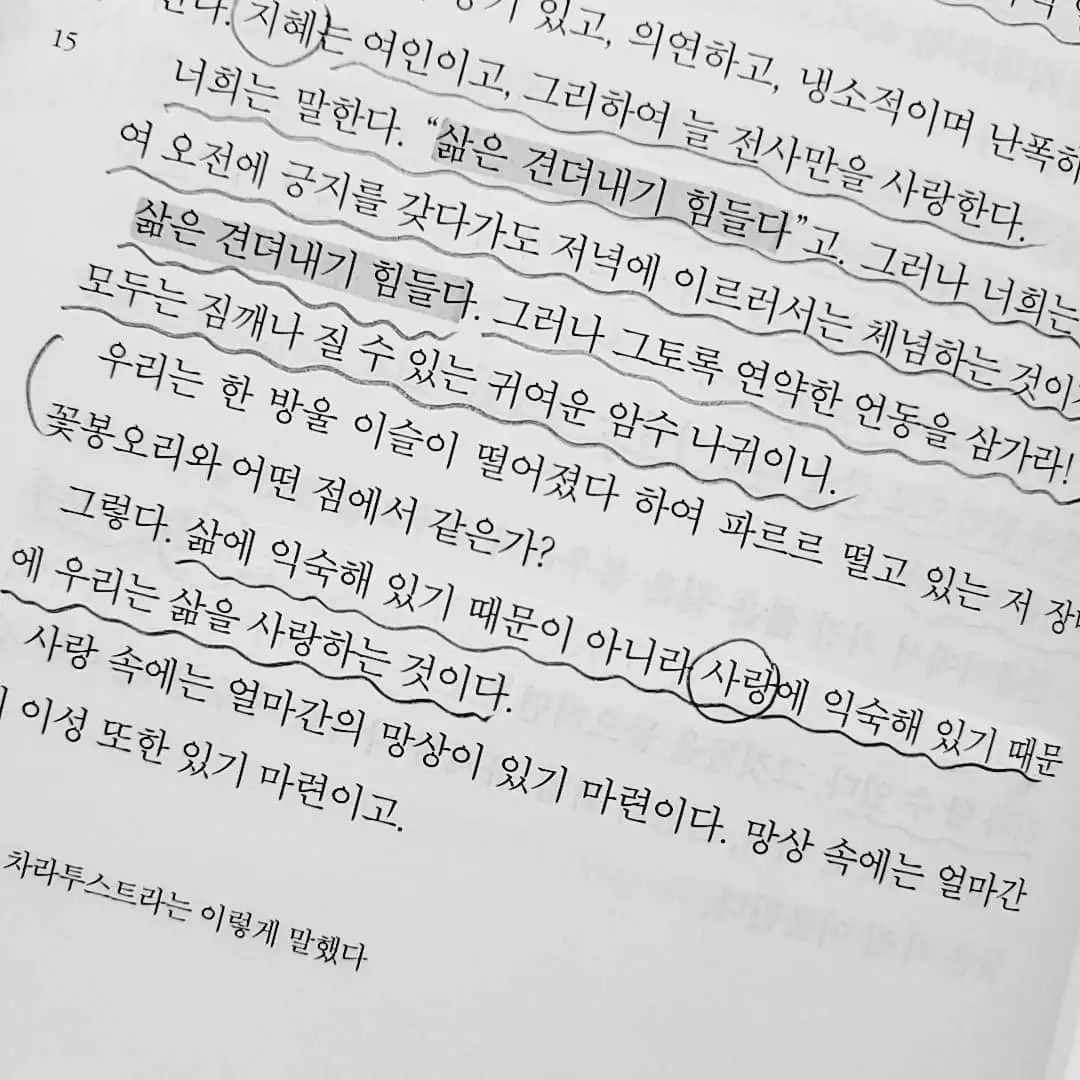 있고, 의연하고, 냉소적이며
15
지혜는 여인이고, 그리하여 늘 전사만을 사랑한다.
너희는 말한다. “삶은 견뎌내기 힘들다”고. 그러나 너희는
여 오전에 긍지를 갖다가도 저녁에 이르러서는 체념하는 것이
삶은 견뎌내기 힘들다. 그러나 그토록 연약한 언동을 삼가라!
모두는 짐깨나 질 수 있는 귀여운 암수 나귀이니.
우리는 한 방울 이슬이 떨어졌다 하여 파르르 떨고 있는 저
꽃봉오리와 어떤 점에서 같은가?
그렇다. 삶에 익숙해 있기 때문이 아니라 사랑에 익숙해 있기 때문
에 우리는 삶을 사랑하는 것이다.
사랑 속에는 얼마간의 망상이 있기 마련이다. 망상 속에는 얼마간
이성 또한 있기 마련이고.
차라투스트라는 이렇게 말했다